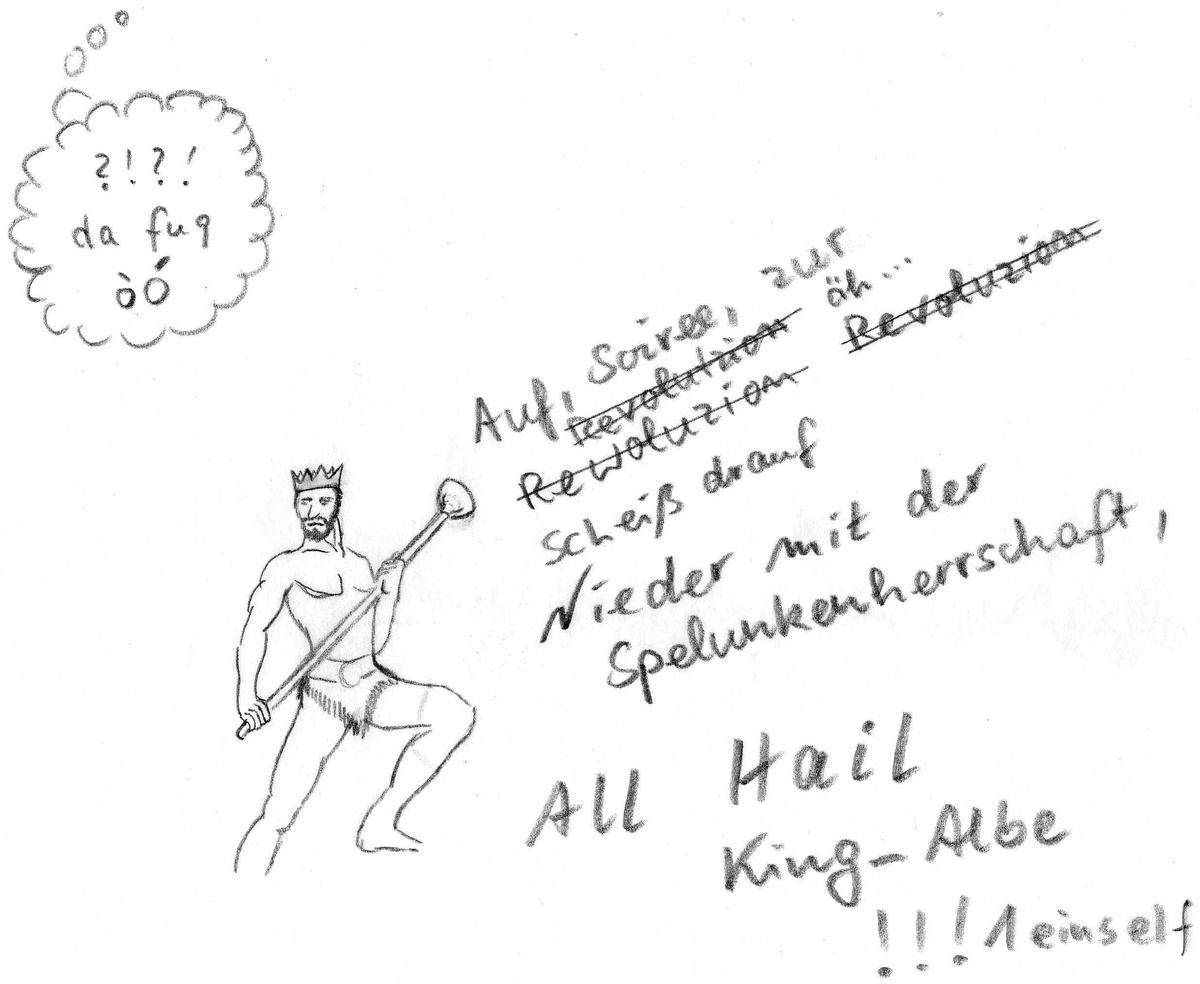 ?!?!
da fuq
òÓ
Auf, Soiree, zur
Revolutzion äh... Revoluzion
Rewoluziom
scheiß drauf
Nieder mit der
Spelunkenherrschaft,
All Hail
King-Albe
!!!1einself